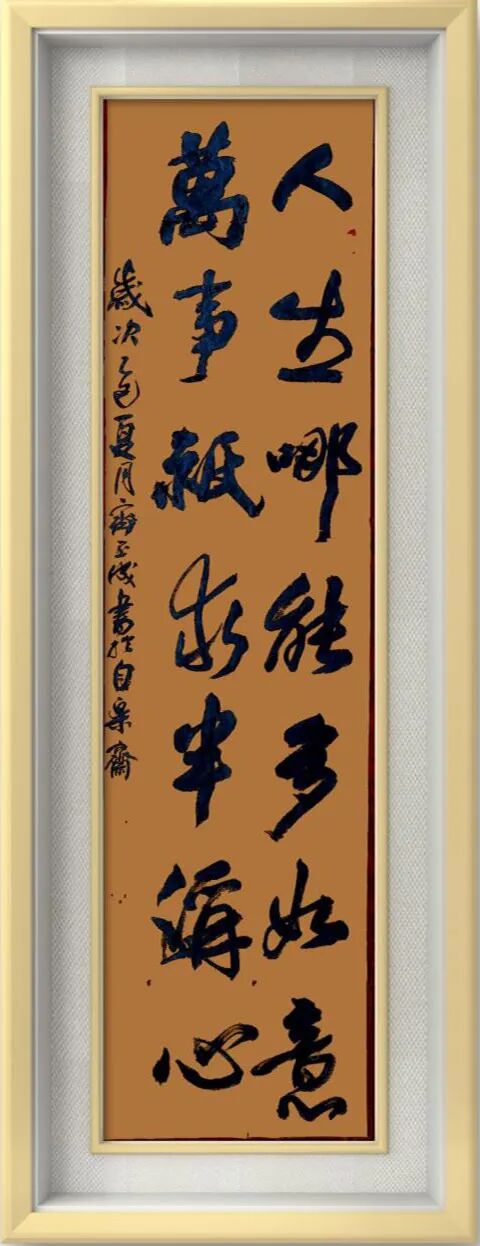 人生哪能多如意
萬事祇求半稱心
歲次乙巳夏月書於自樂齋